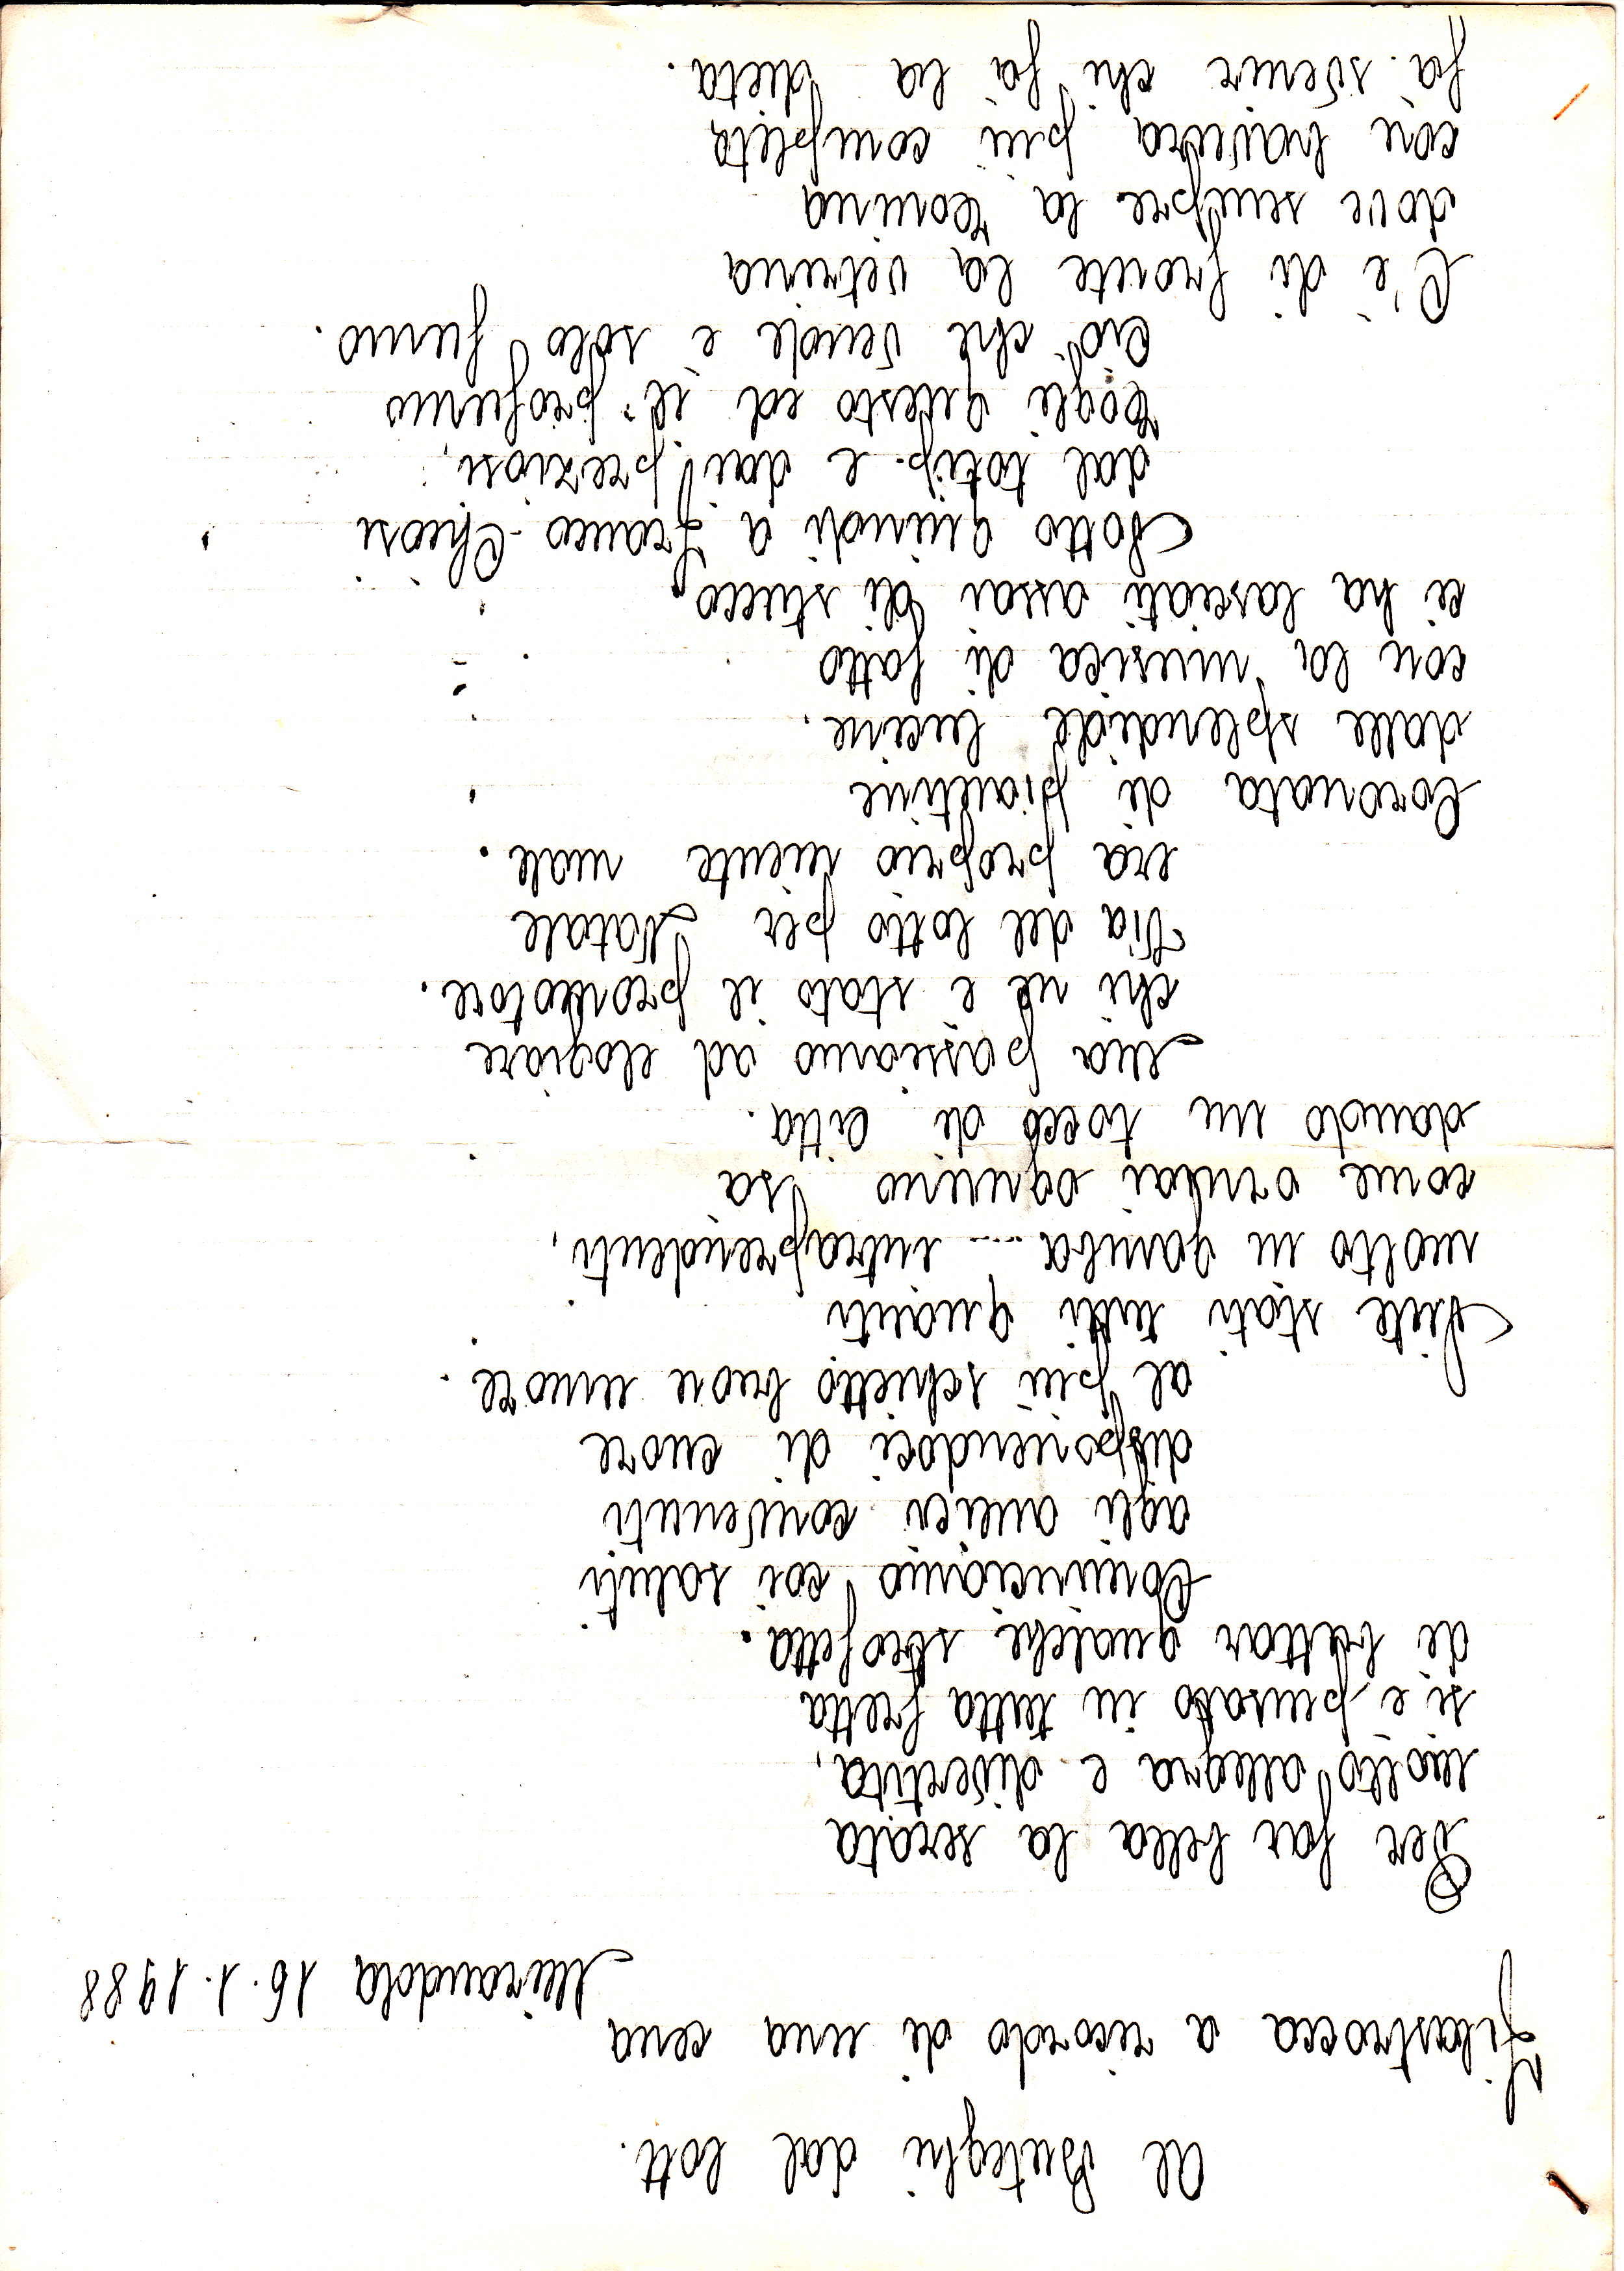 Al Buteghi dal lott.
Filastrocca a ricordo di una cena
Mirandola 16.1.1988
Per far bella la serata
molto allegra e divertita,
si è pensato in tutta fretta
di buttar qualche strofetta.
Cominciamo coi saluti
agli amici convenuti
disponendoci di cuore
al più schietto buon umore.
Siete stati tutti quanti
molto in gamba.... intraprendenti,
come ormai ognuno sà
dando un tocco di città.
Ma passiamo ad elogiare
chi ne è stato il promotore.
Via del lotto per Natale
era proprio niente male.
Coronata di piantine
dalle splendide lucine.
con la musica di fatto
ci ha lasciati assai di stucco.
Sotto quindi a Franco Chiosi
dal totip. e dai preziosi,
Togli questo ed il profumo
Ciò che vende è solo fumo.
C'è di fronte la vetrina
dove sempre la Tonina
con bravura più completa
fà svenir chi fà la dieta.